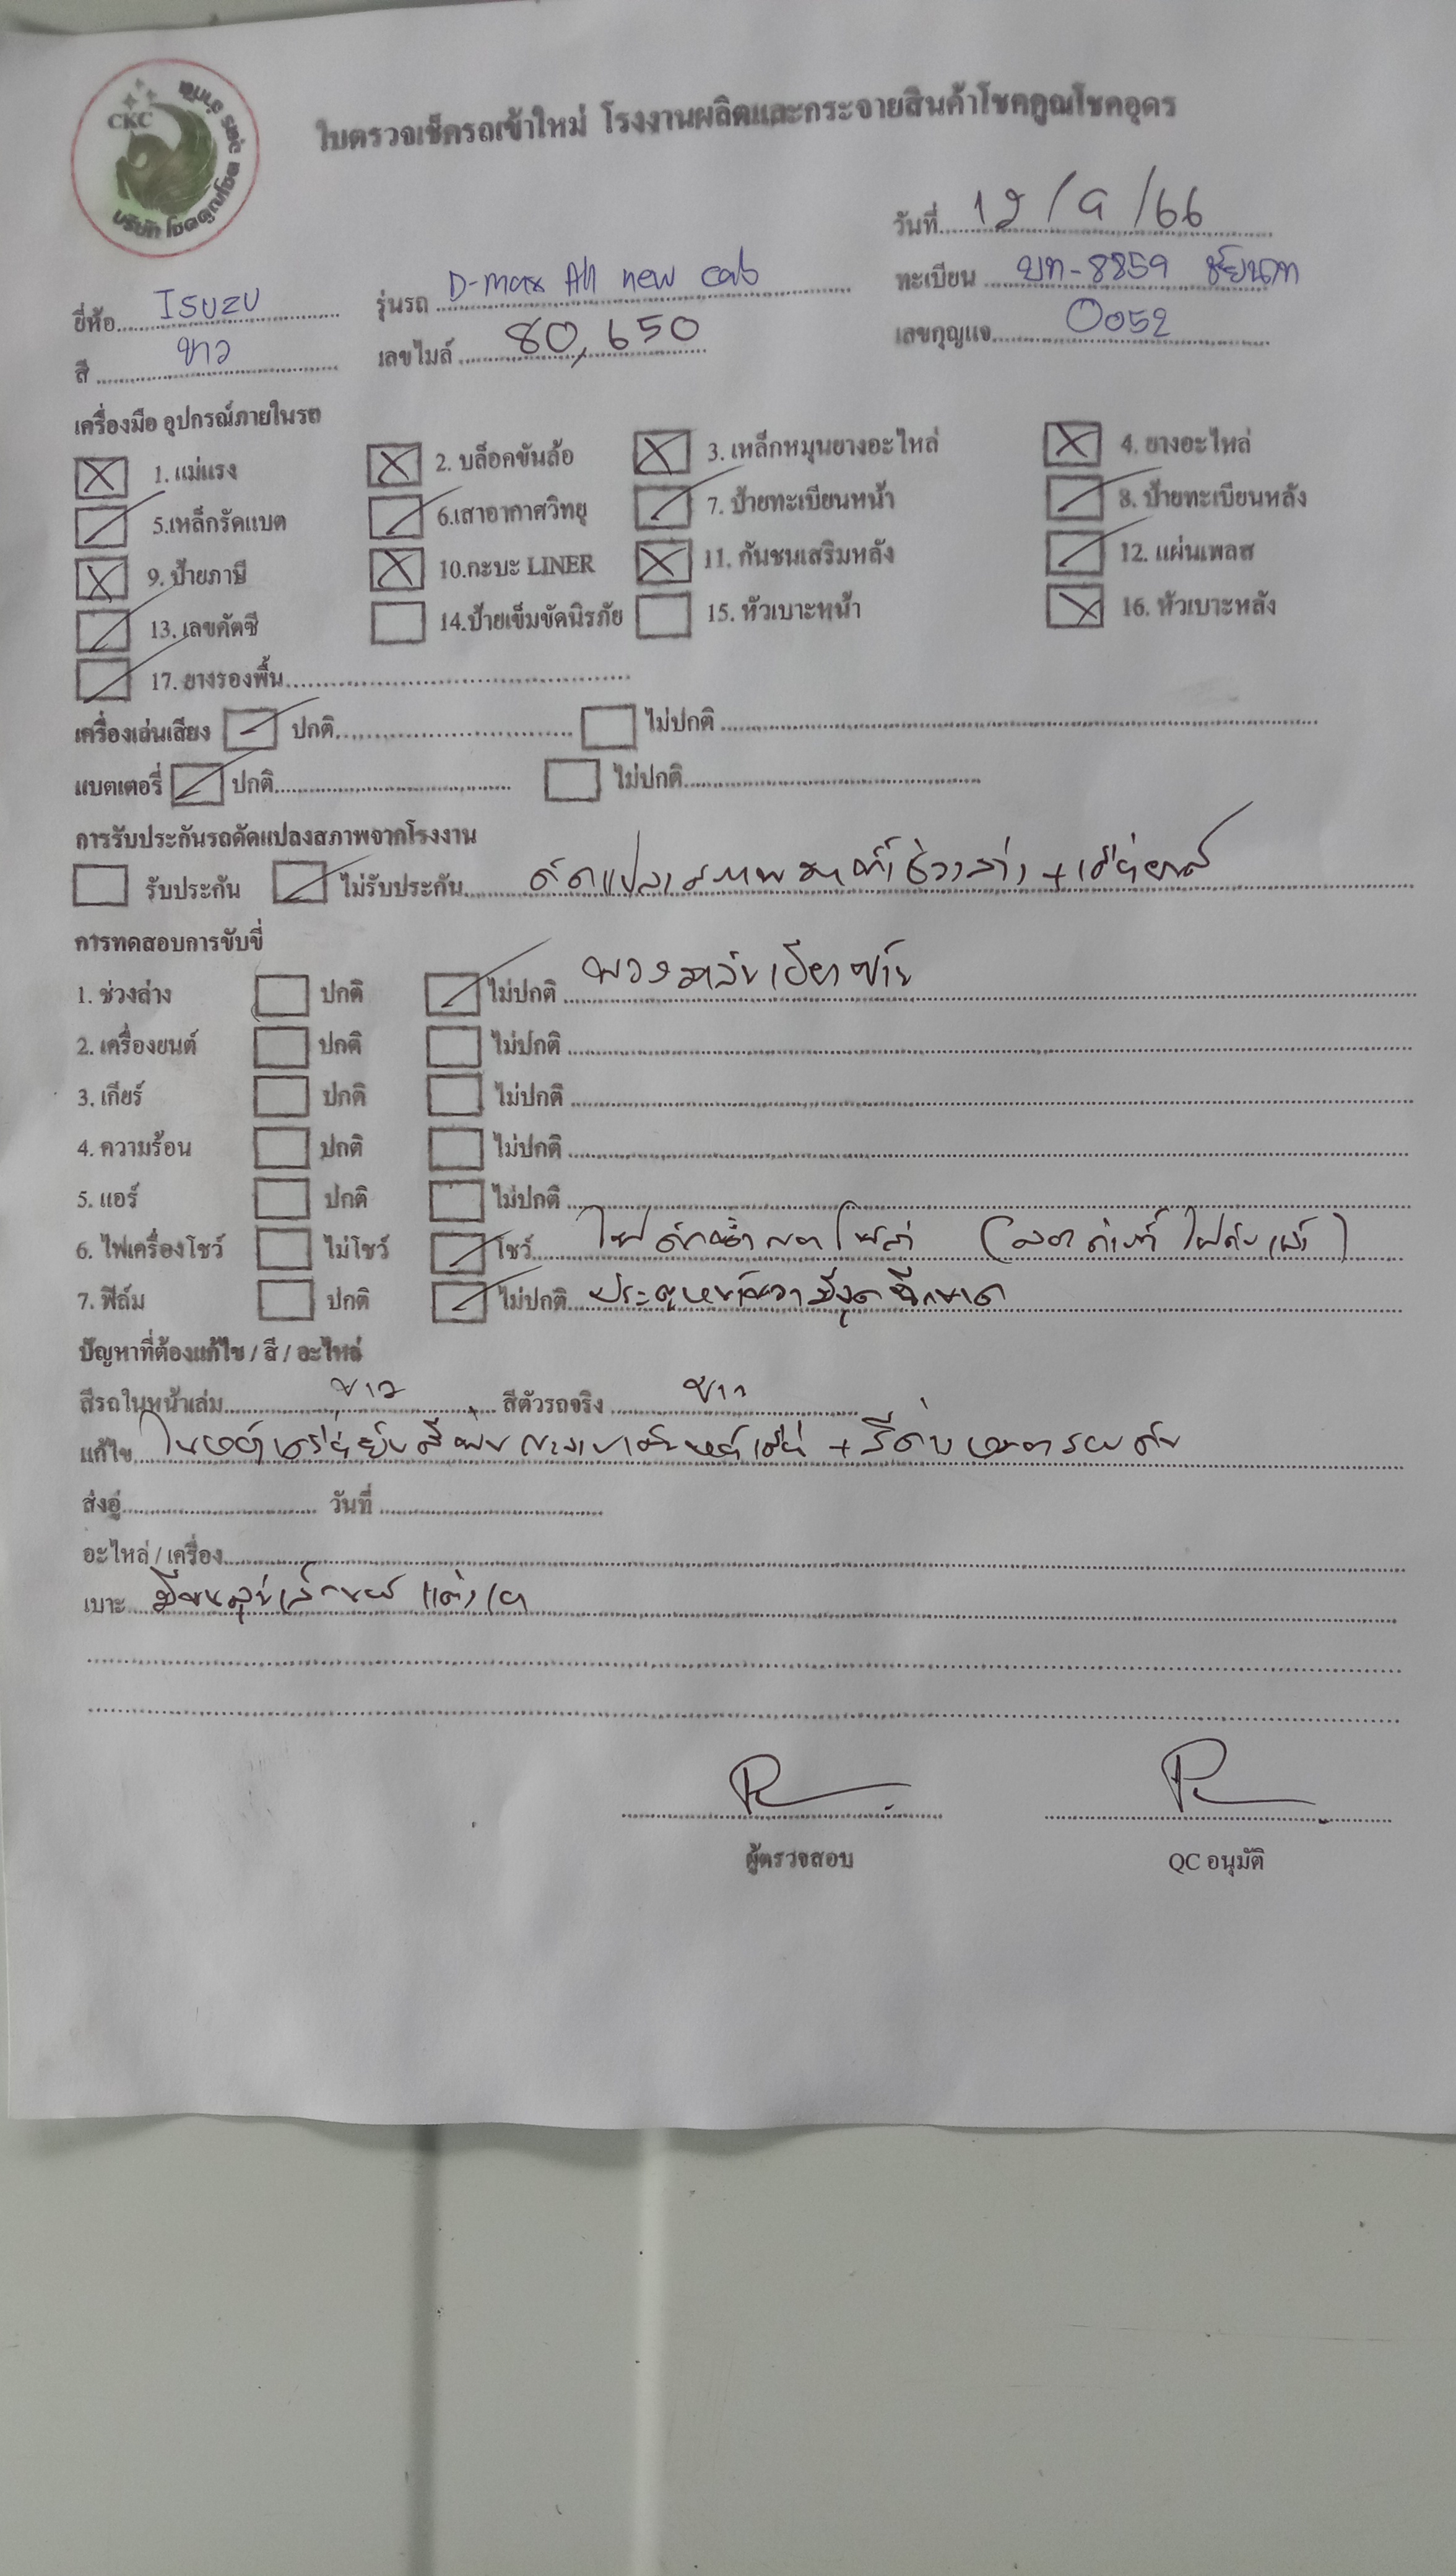 CKC
บริษัท โชคคูณโชค อุดร จำกัด
ใบตรวจเช็ครถเข้าใหม่ โรงงานผลิตและกระจายสินค้าโชคคูณโชคอุดร
วันที่ 12/9/66
ยี่ห้อ ISUZU รุ่นรถ D-max All new cab ทะเบียน บท-8859 ชัยนาท
สี ขาว เลขไมล์ 80,650 เลขกุญแจ 0052
เครื่องมือ อุปกรณ์ภายในรถ
1. แม่แรง 2. บล็อคขันล้อ 3. เหล็กหมุนยางอะไหล่ 4. ยางอะไหล่
5.เหล็กรัดแบต 6.เสาอากาศวิทยุ 7. ป้ายทะเบียนหน้า 8. ป้ายทะเบียนหลัง
9. ป้ายภาษี 10.กะบะ LINER 11. กันชนเสริมหลัง 12. แผ่นเพลส
13. เลขคัตซี 14.ป้ายเข็มขัดนิรภัย 15. หัวเบาะหน้า 16. หัวเบาะหลัง
17. ยางรองพื้น
เครื่องเล่นเสียง ปกติ ไม่ปกติ
แบตเตอรี่ ปกติ ไม่ปกติ
การรับประกันรถดัดแปลงสภาพจากโรงงาน
รับประกัน ไม่รับประกัน ดัดแปลงสภาพ
การทดสอบการขับขี่
1. ช่วงล่าง ปกติ ไม่ปกติ พวงมาลัยเอียงซ้าย
2. เครื่องยนต์ ปกติ ไม่ปกติ
3. เกียร์ ปกติ ไม่ปกติ
4. ความร้อน ปกติ ไม่ปกติ
5. แอร์ ปกติ ไม่ปกติ
6. ไฟเครื่องโชว์ ไม่โชว์ โชว์
7. ฟิล์ม ปกติ ไม่ปกติ ประตูหน้าขวามีจุดฉีกขาด
ปัญหาที่ต้องแก้ไข / สี / อะไหล่
สีรถในหน้าเล่ม ขาว สีตัวรถจริง ขาว
แก้ไข
ส่งอู่ วันที่
อะไหล่ / เครื่อง
เบาะ
ผู้ตรวจสอบ QC อนุมัติ